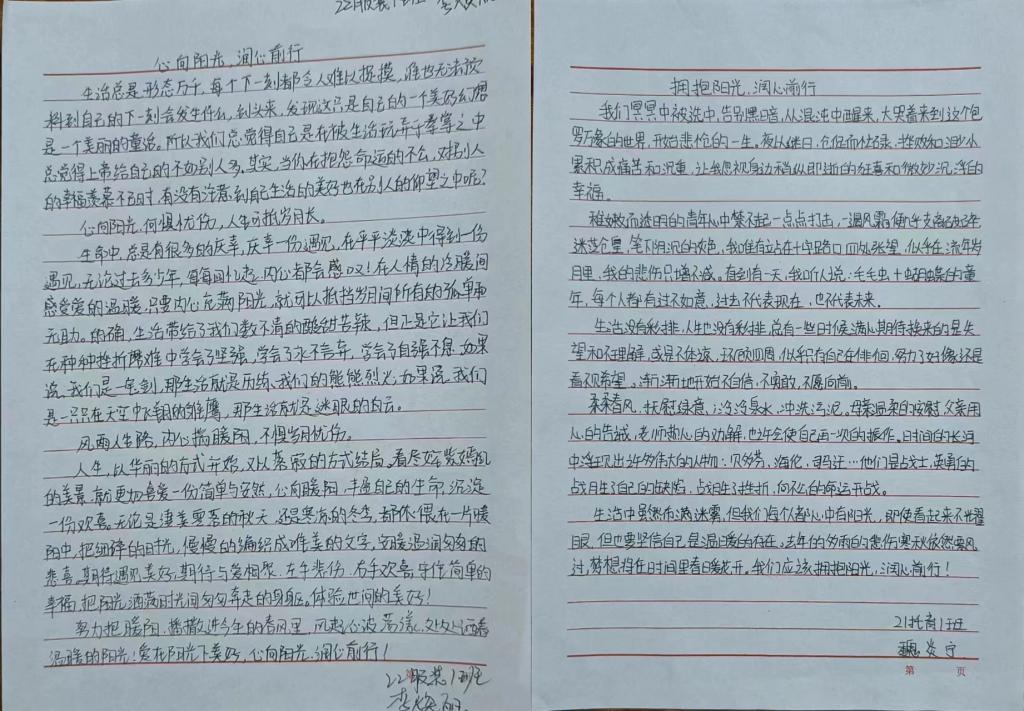 22服装1班
心向阳光,润心前行
生活总是形态万千,每个下一刻都令人难以捉摸,谁也无法预
料到自己的下一刻会发生什么,到头来,发现这只是自己的一个美好幻想
是一个美丽的童话。所以我们总觉得自己是在被生活玩弄于拳掌之中
总觉得上帝给自己的不如别人多。其实,当你在抱怨命运的不公,对别人
的幸福羡慕不已时,有没有注意到自己生活的美好也在别人的仰望之中呢?
心向阳光,何惧忧伤,人生可抵岁月长。
生命中,总是有很多的庆幸,庆幸一份遇见,在平平淡淡中得到一份
遇见,无论过去多少年,每每回忆起,内心都会感叹!在人情的冷暖间
感受爱的温暖,只要内心充满阳光,就可以抵挡岁月间所有的孤单和
无助。的确,生活带给了我们数不清的酸甜苦辣,但正是它让我们
在种种挫折磨难中学会了坚强,学会了永不言弃,学会了自强不息。如果
说,我们是一把剑,那生活就是历练我们的熊熊烈火;如果说,我们
是一只只在天空中飞翔的雏鹰,那生活就是迷眼的白云。
风雨人生路,内心揣暖阳,不惧岁月忧伤。
人生,以华丽的方式开始,又以落寂的方式结局。看尽姹紫嫣红
的美景,就更加喜爱一份简单与安然,心向暖阳,丰盈自己的生命,沉淀
一份欢喜。无论是凄美零落的秋天,还是寒冷的冬季,都依偎在一片暖
阳中,把细碎的时光,慢慢的编织成唯美的文字,安暖温润匆匆的
悲喜。期待遇见美好,期待与爱相聚,左手悲伤,右手欢喜,守住简单的
幸福,把阳光洒满时光间匆匆奔走的身躯。体验世间的美好!
努力把暖阳,播撒进今年的春风里,风起心波荡漾,处处洒着
温暖的阳光!爱在阳光下美好,心向阳光,润心前行!
22服装1班
拥抱阳光,润心前行
我们冥冥中被选中,告别黑暗,从混沌中醒来,大哭着来到这个包
罗万象的世界,开始悲怆的一生。夜以继日,仓促而忙碌,挫败和泪水
累积成痛苦和沉重,让我忽视身边稍纵即逝的狂喜和微妙沉浮的
幸福。
稚嫩而透明的青年心中禁不起一点点打击,一遇风霜便好
迷茫仓皇,笔下阴沉的灰色,我唯有站在十字路口四处张望,似乎在流年岁
月里,我的悲伤只增不减。直到有一天,我听人说:毛毛虫是蝴蝶的童
年,每个人都有过不如意,过去不代表现在,也不代表未来。
生活没有彩排,人生也没有彩排,总有一些时候满心期待换来的是失
望和不理解,或是不体谅,环顾四周,似乎只有自己在徘徊,努力了好像还是
看不见希望。渐渐地开始不自信,不勇敢,不愿向前。
柔柔春风,抚慰绿意,泠泠泉水,冲洗污泥,母亲温柔的安慰,父亲用
心的告诫,老师热心的劝解,也许会使自己再一次的振作。时间的长河
中涌现出许多伟大的人物:贝多芬,海伦,司马迁…他们是战士,英勇的
战胜了自己的缺陷,战胜了挫折,向不公的命运开战。
生活中虽然布满迷雾,但我们每个人都心中有阳光,即使看起来不世耀
眼,但也要坚信自己是温暖的存在。去年的多雨的悲伤寒秋依然要风
过,梦想将在时间里春暖花开。我们应该拥抱阳光,润心前行!
21托育1班
第 页